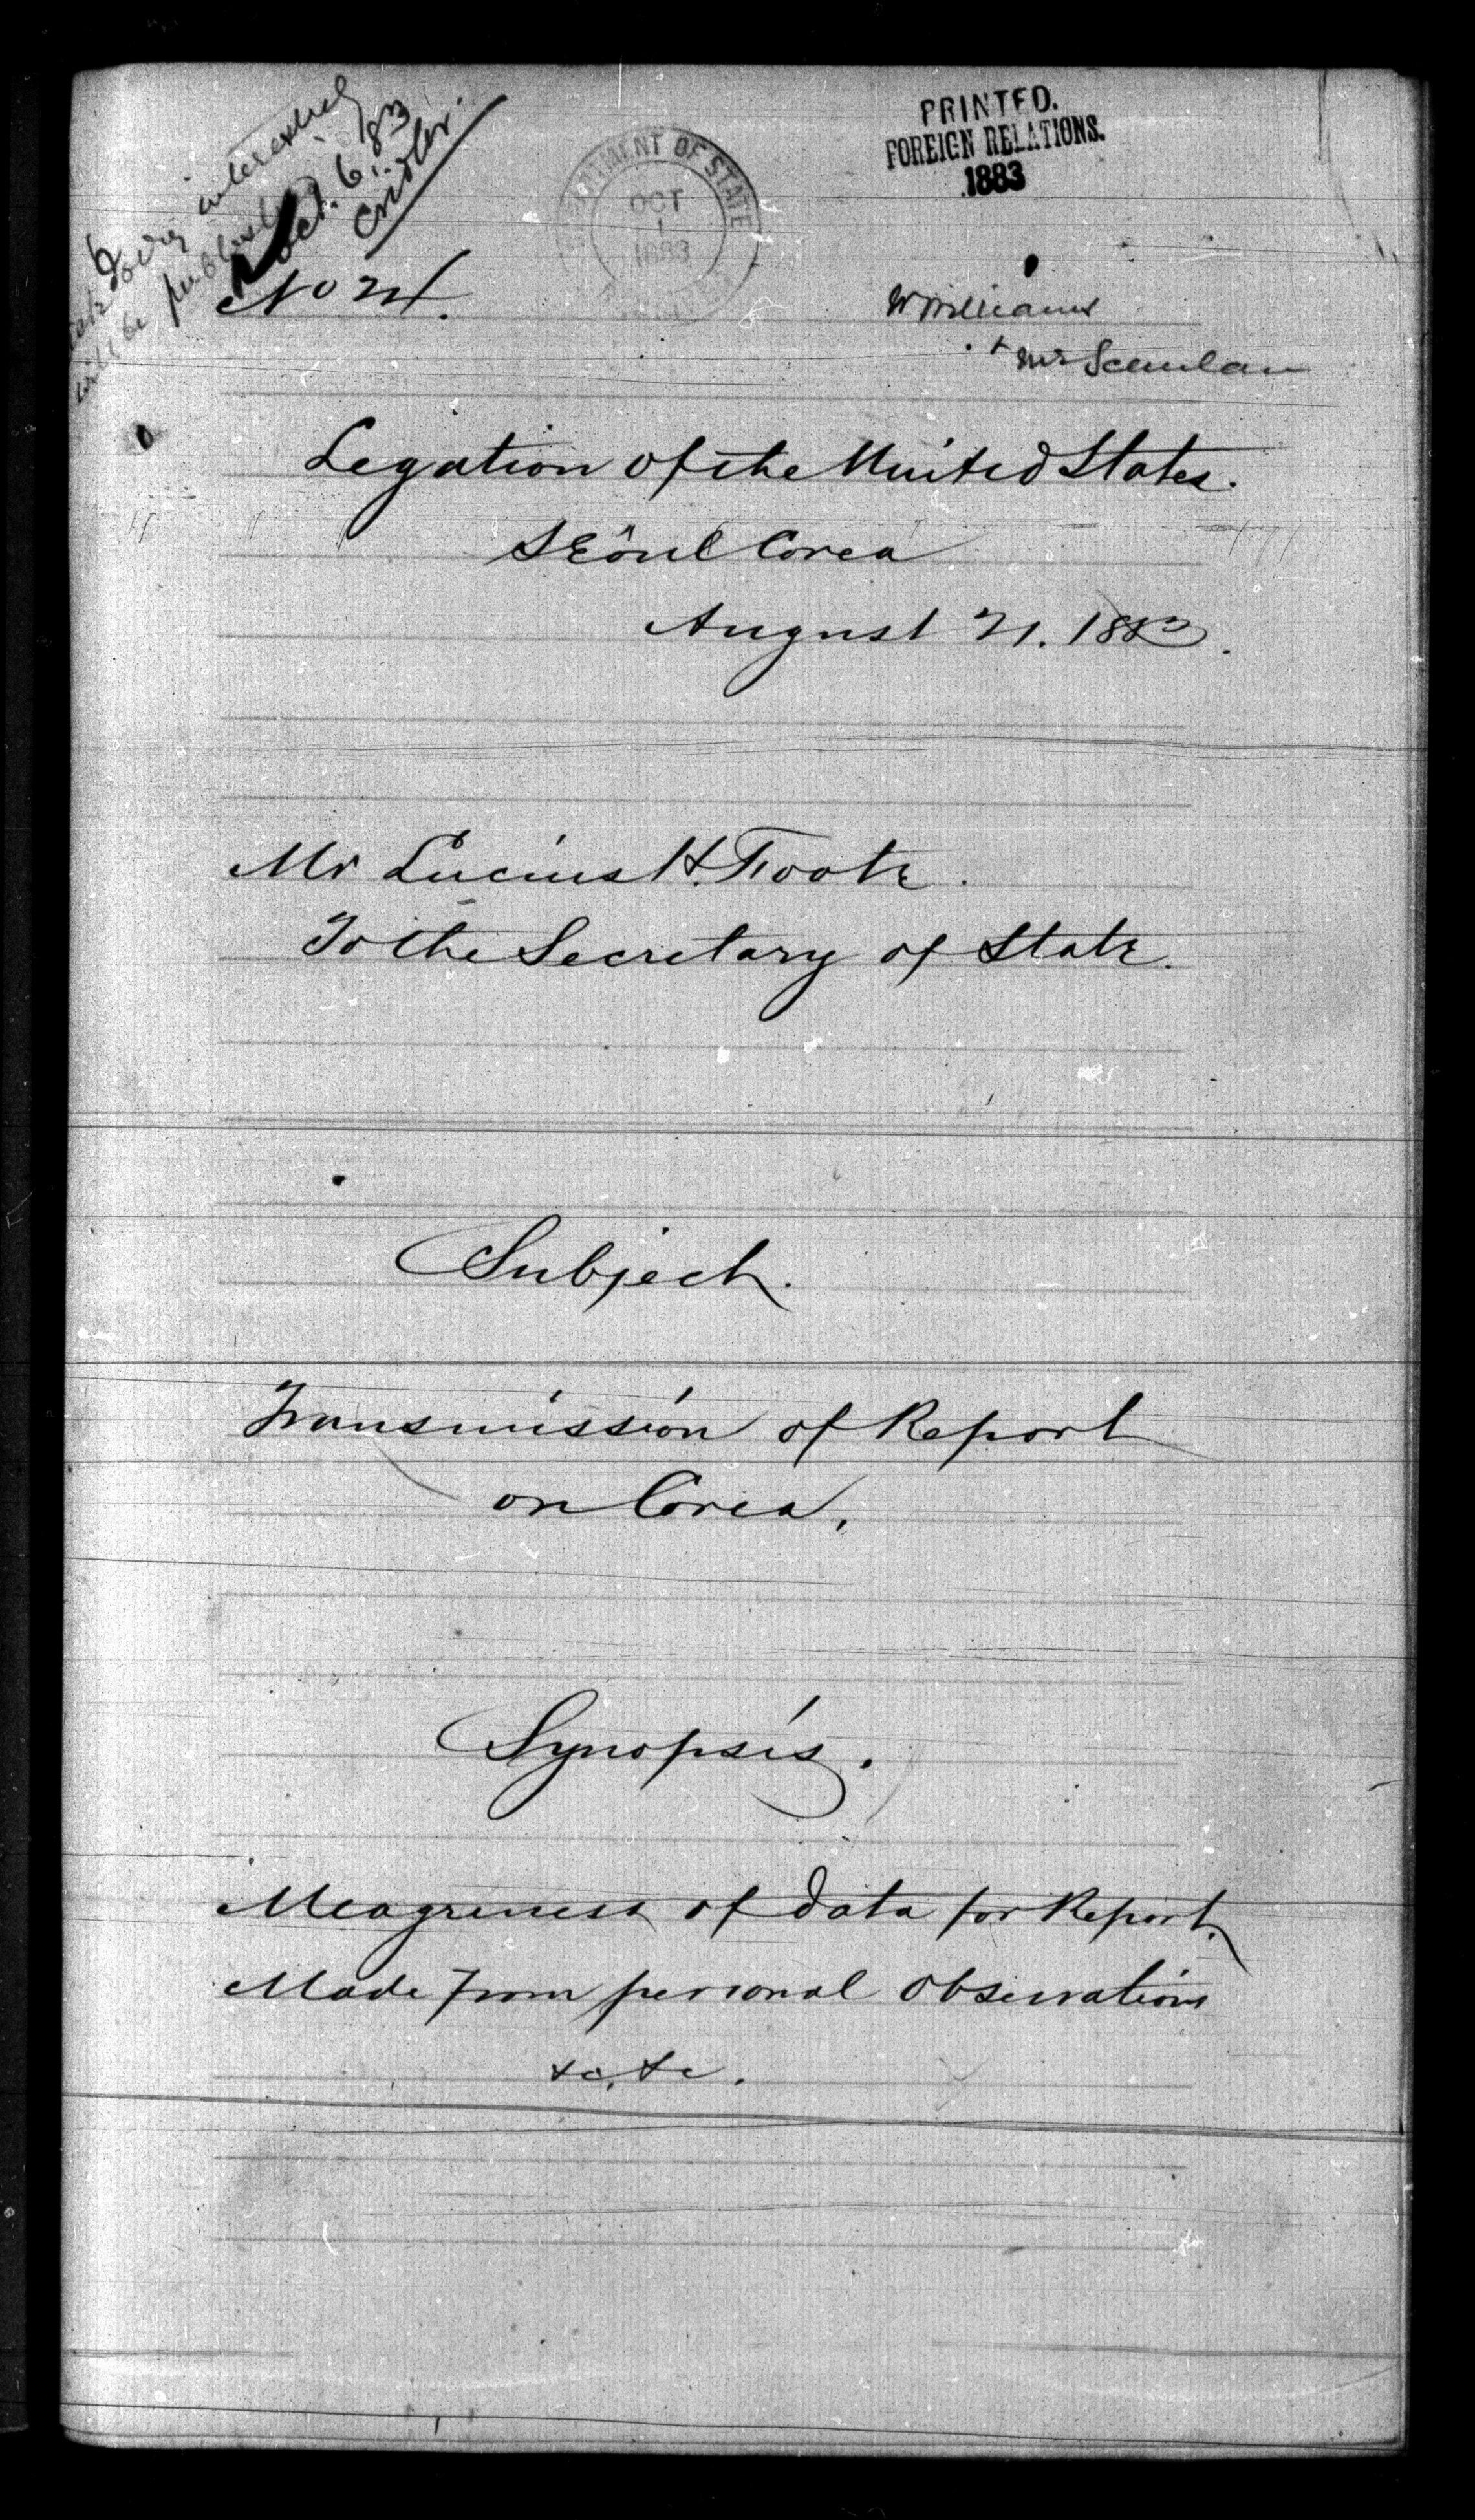 interesting
will be published
Oct. 6. '83
Cridler.
PRINTED.
FOREIGN RELATIONS.
1883
DEPARTMENT OF STATE
OCT
1
1883
No 24.
Williams
+ Mr Scanlan
Legation of the United States.
SEôul Corea
August 21. 1883.
Mr Lucius H. Foote.
To the Secretary of State.
Subject.
Transmission of Report
on Corea.
Synopsis.
Meagreness of data for Report.
Made from personal observations
&c. &c.